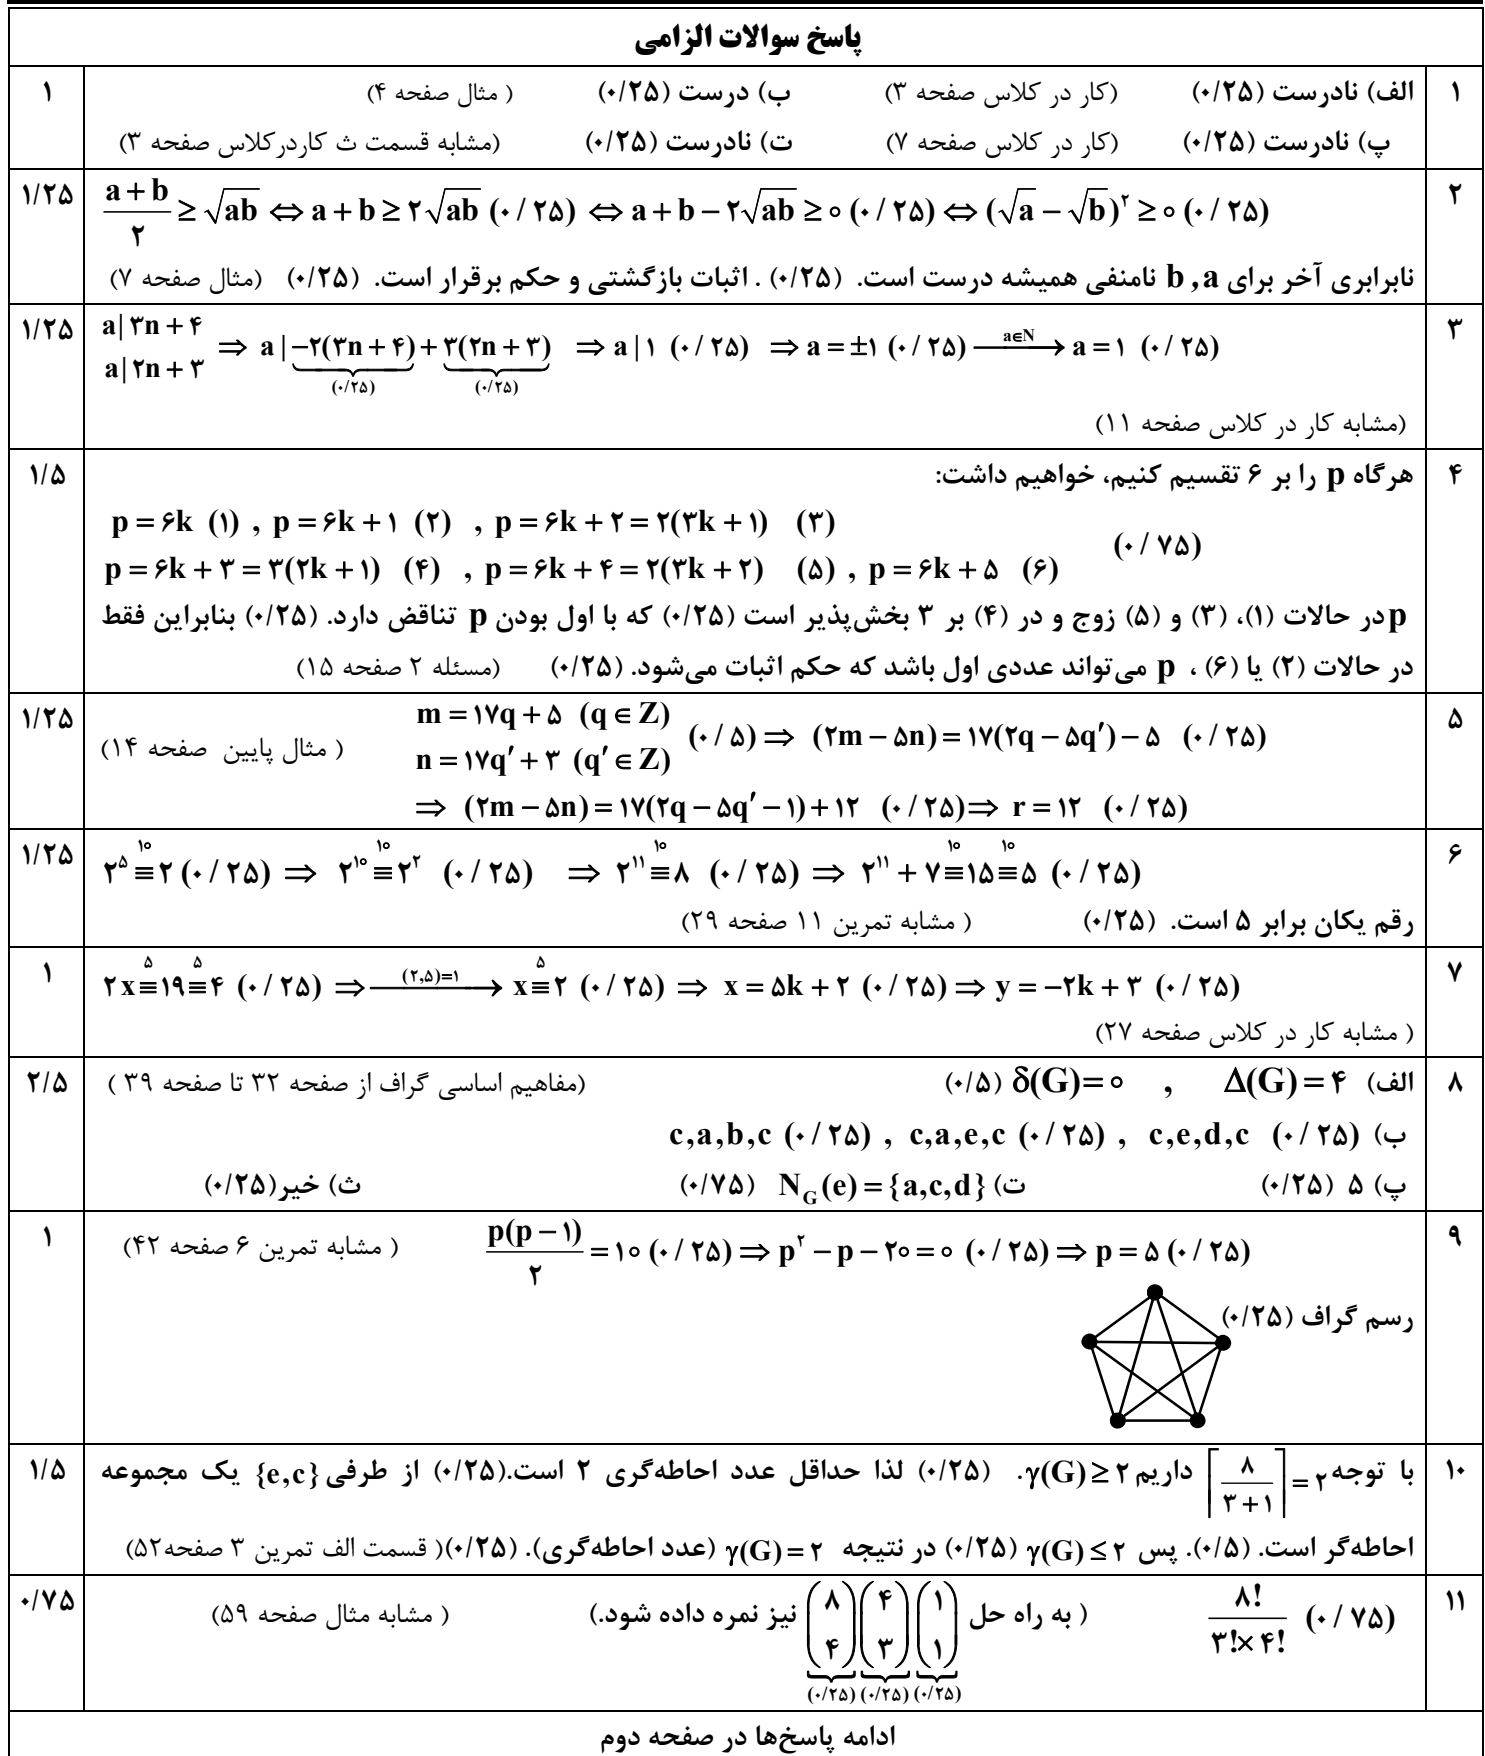 پاسخ سوالات الزامی
۱ الف) نادرست (۰/۲۵) (کار در کلاس صفحه ۳) ب) درست (۰/۲۵) ( مثال صفحه ۴) ۱
پ) نادرست (۰/۲۵) (کار در کلاس صفحه ۷) ت) نادرست (۰/۲۵) (مشابه قسمت ث کاردرکلاس صفحه ۳)
۲ (a + b)/۲ ≥ √ab ⇔ a + b ≥ ۲√ab (۰ / ۲۵) ⇔ a + b − ۲√ab ≥ ۰ (۰ / ۲۵) ⇔ (√a − √b)^۲ ≥ ۰ (۰ / ۲۵) ۱/۲۵
نابرابری آخر برای b , a نامنفی همیشه درست است. (۰/۲۵) . اثبات بازگشتی و حکم برقرار است. (۰/۲۵) (مثال صفحه ۷)
۳ a | ۳n + ۴ ۱/۲۵
a | ۲n + ۳ ⇒ a | −۲(۳n + ۴) + ۳(۲n + ۳) ⇒ a | ۱ (۰ / ۲۵) ⇒ a = ±۱ (۰ / ۲۵) a∈N → a = ۱ (۰ / ۲۵)
(۰/۲۵) (۰/۲۵)
(مشابه کار در کلاس صفحه ۱۱)
۴ هرگاه p را بر ۶ تقسیم کنیم، خواهیم داشت: ۱/۵
p = ۶k (۱) , p = ۶k + ۱ (۲) , p = ۶k + ۲ = ۲(۳k + ۱) (۳)
(۰ / ۷۵)
p = ۶k + ۳ = ۳(۲k + ۱) (۴) , p = ۶k + ۴ = ۲(۳k + ۲) (۵) , p = ۶k + ۵ (۶)
p در حالات (۱)، (۳) و (۵) زوج و در (۴) بر ۳ بخش‌پذیر است (۰/۲۵) که با اول بودن p تناقض دارد. (۰/۲۵) بنابراین فقط
در حالات (۲) یا (۶) ، p می‌تواند عددی اول باشد که حکم اثبات می‌شود. (۰/۲۵) (مسئله ۲ صفحه ۱۵)
۵ m = ۱۷q + ۵ (q ∈ Z) ۱/۲۵
n = ۱۷q′ + ۳ (q′ ∈ Z) (۰ / ۵) ⇒ (۲m − ۵n) = ۱۷(۲q − ۵q′) − ۵ (۰ / ۲۵) ( مثال پایین صفحه ۱۴)
⇒ (۲m − ۵n) = ۱۷(۲q − ۵q′ − ۱) + ۱۲ (۰ / ۲۵) ⇒ r = ۱۲ (۰ / ۲۵)
۶ ۲^۵ ≡^۱۰ ۲ (۰ / ۲۵) ⇒ ۲^۱۰ ≡^۱۰ ۲^۲ (۰ / ۲۵) ⇒ ۲^۱۱ ≡^۱۰ ۸ (۰ / ۲۵) ⇒ ۲^۱۱ + ۷ ≡^۱۰ ۱۵ ≡^۱۰ ۵ (۰ / ۲۵) ۱/۲۵
رقم یکان برابر ۵ است. (۰/۲۵) ( مشابه تمرین ۱۱ صفحه ۲۹)
۷ ۲x ≡^۵ ۱۹ ≡^۵ ۴ (۰ / ۲۵) ⇒ (۲,۵)=۱ → x ≡^۵ ۲ (۰ / ۲۵) ⇒ x = ۵k + ۲ (۰ / ۲۵) ⇒ y = −۲k + ۳ (۰ / ۲۵) ۱
( مشابه کار در کلاس صفحه ۲۷)
۸ الف) Δ(G) = ۴ , δ(G) = ۰ (۰/۵) (مفاهیم اساسی گراف از صفحه ۳۲ تا صفحه ۳۹ ) ۲/۵
ب) c,a,b,c (۰ / ۲۵) , c,a,e,c (۰ / ۲۵) , c,e,d,c (۰ / ۲۵)
پ) ۵ (۰/۲۵) ت) N_G(e) = {a,c,d} (۰/۷۵) ث) خیر(۰/۲۵)
۹ p(p − ۱)/۲ = ۱۰ (۰ / ۲۵) ⇒ p^۲ − p − ۲۰ = ۰ (۰ / ۲۵) ⇒ p = ۵ (۰ / ۲۵) ( مشابه تمرین ۶ صفحه ۴۲) ۱
رسم گراف (۰/۲۵)
۱۰ با توجه ⌈۸/(۳+۱)⌉ = ۲ داریم γ(G) ≥ ۲. (۰/۲۵) لذا حداقل عدد احاطه‌گری ۲ است.(۰/۲۵) از طرفی {e,c} یک مجموعه ۱/۵
احاطه‌گر است. (۰/۵). پس γ(G) ≤ ۲ (۰/۲۵) در نتیجه γ(G) = ۲ (عدد احاطه‌گری). (۰/۲۵)( قسمت الف تمرین ۳ صفحه۵۲)
۱۱ ۸!/(۳!×۴!) (۰ / ۷۵) ( به راه حل (۸ ۴)(۴ ۳)(۱ ۱) نیز نمره داده شود.) ( مشابه مثال صفحه ۵۹) ۰/۷۵
(۰/۲۵) (۰/۲۵) (۰/۲۵)
ادامه پاسخ‌ها در صفحه دوم